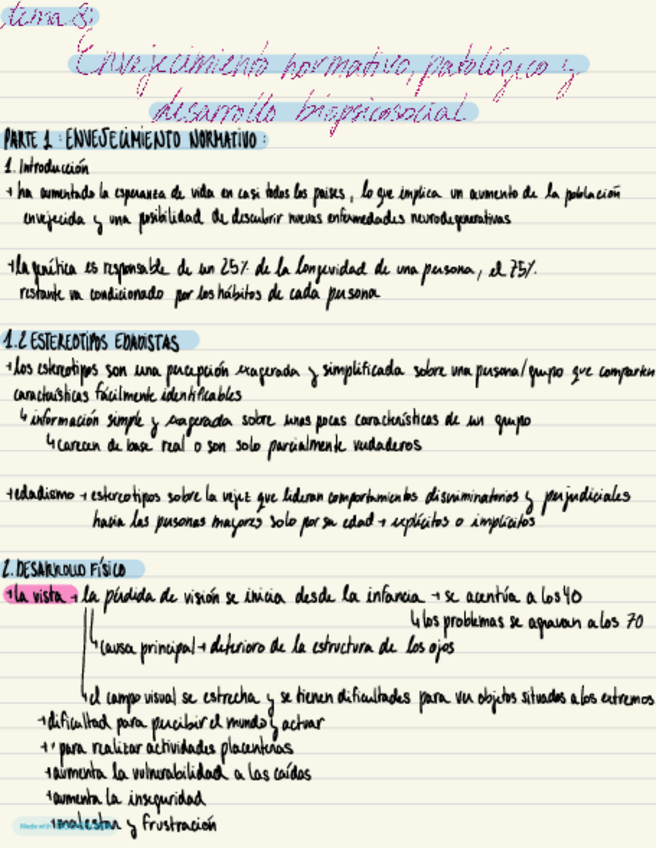 tema 8:
Envejecimiento normativo, patológico y
desarrollo biopsicosocial
PARTE 1: ENVEJECIMIENTO NORMATIVO:
1. Introducción
→ ha aumentado la esperanza de vida en casi todos los países, lo que implica un aumento de la población
envejecida y una posibilidad de descubrir nuevas enfermedades neurodegenerativas
→ la genética es responsable de un 25% de la longevidad de una persona, el 75%
restante va condicionado por los hábitos de cada persona
1.2 ESTEREOTIPOS EDADISTAS
→ los estereotipos son una percepción exagerada y simplificada sobre una persona/grupo que comparten
características fácilmente identificables
↳ información simple y exagerada sobre unas pocas características de un grupo
↳ carecen de base real o son solo parcialmente verdaderos
→ edadismo → estereotipos sobre la vejez que lideran comportamientos discriminatorios y perjudiciales
hacia las personas mayores solo por su edad → explícitos o implícitos
2. DESARROLLO FÍSICO
→ la vista → la pérdida de visión se inicia desde la infancia → se acentúa a los 40
↳ los problemas se agravan a los 70
↳ causa principal → deterioro de la estructura de los ojos
↳ el campo visual se estrecha y se tienen dificultades para ver objetos situados a los extremos
→ dificultad para percibir el mundo y actuar
→ " para realizar actividades placenteras
→ aumenta la vulnerabilidad a las caídas
→ aumenta la inseguridad
→ malestar y frustración